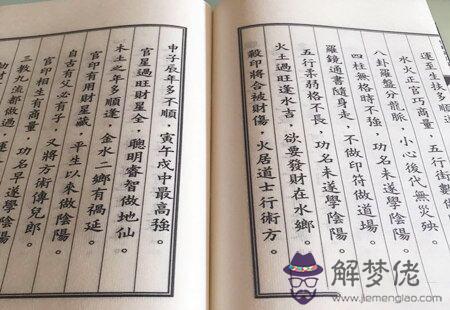 運至生扶多順
水火正官巧商量。五行街數
八卦羅盤分龍脈，小心後代無災殃。
四柱無格時不強，功名未遂學陰陽。
羅鏡通書隨身走，不做印符做道場。
五行柔弱格不長，功名未遂學陰陽。
火土過旺逢水吉，欲要發財在水鄉。
殺印將合被財傷，火居道士行術方。
申子辰年多不順，寅午戌中最高強。
官星過旺財星全，聰明睿智做地仙。
木土之年多順逢，金水二鄉有禍延。
官印有用財星藏，平生以來做陰陽。
自古有父必有子，又將方術傳兒郎。
官印相生有商量，功名早遂學陰陽。
三教九流都做過，
解梦佬
www.jiemenglao.com